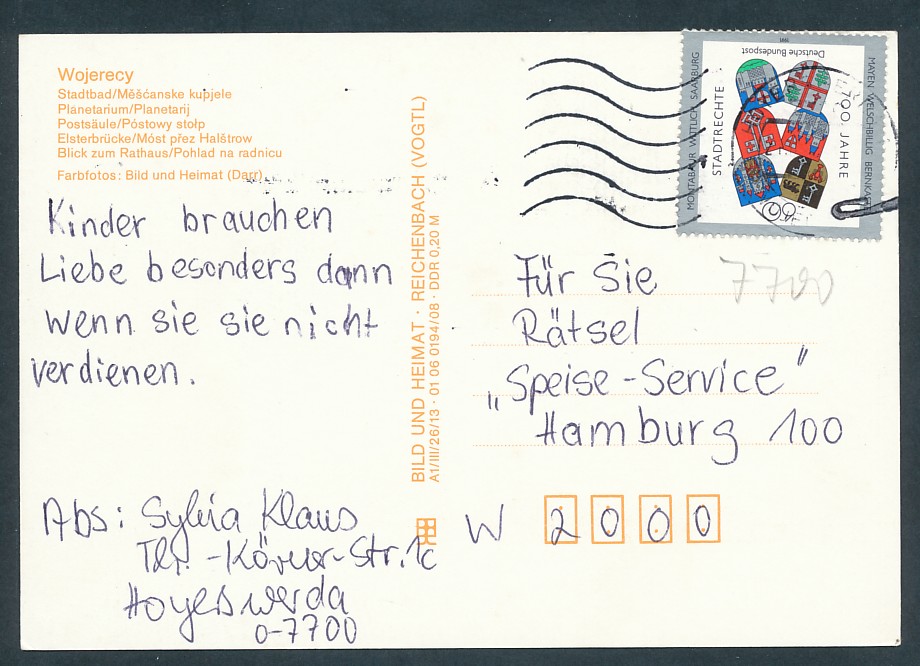 Wojerecy
Stadtbad/Měšćanske kupjele
Planetarium/Planetarij
Postsäule/Póstowy stołp
Elsterbrücke/Móst přez Halštrow
Blick zum Rathaus/Pohlad na radnicu
Farbfotos: Bild und Heimat (Darr)
Kinder brauchen
Liebe besonders dann
wenn sie sie nicht
verdienen.
Abs: Sylvia Klaus
Th. -Körner-Str. 1c
Hoyerswerda
O-7700
BILD UND HEIMAT · REICHENBACH (VOGTL)
A1/III/26/13 · 01 06 0194/08 · DDR 0,20 M
Deutsche Bundespost
1991
MONTABAUR WITTLICH SAARBURG
STADTRECHTE
700 JAHRE
MAYEN WELSCHBILLIG BERNKASTEL
60
7700
Für Sie
Rätsel
„Speise-Service"
Hamburg 100
W 2000